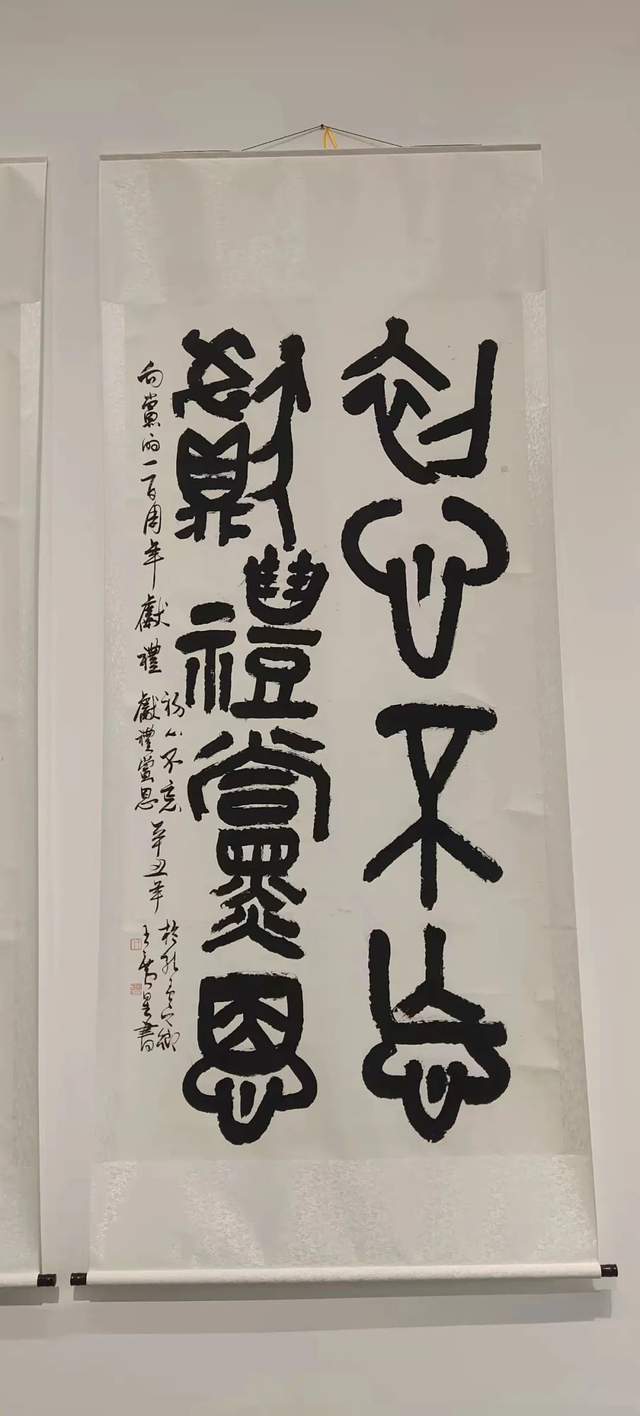 初心不忘
獻禮黨恩
向黨的一百周年獻禮
初心不忘
獻禮黨恩
辛丑年
書